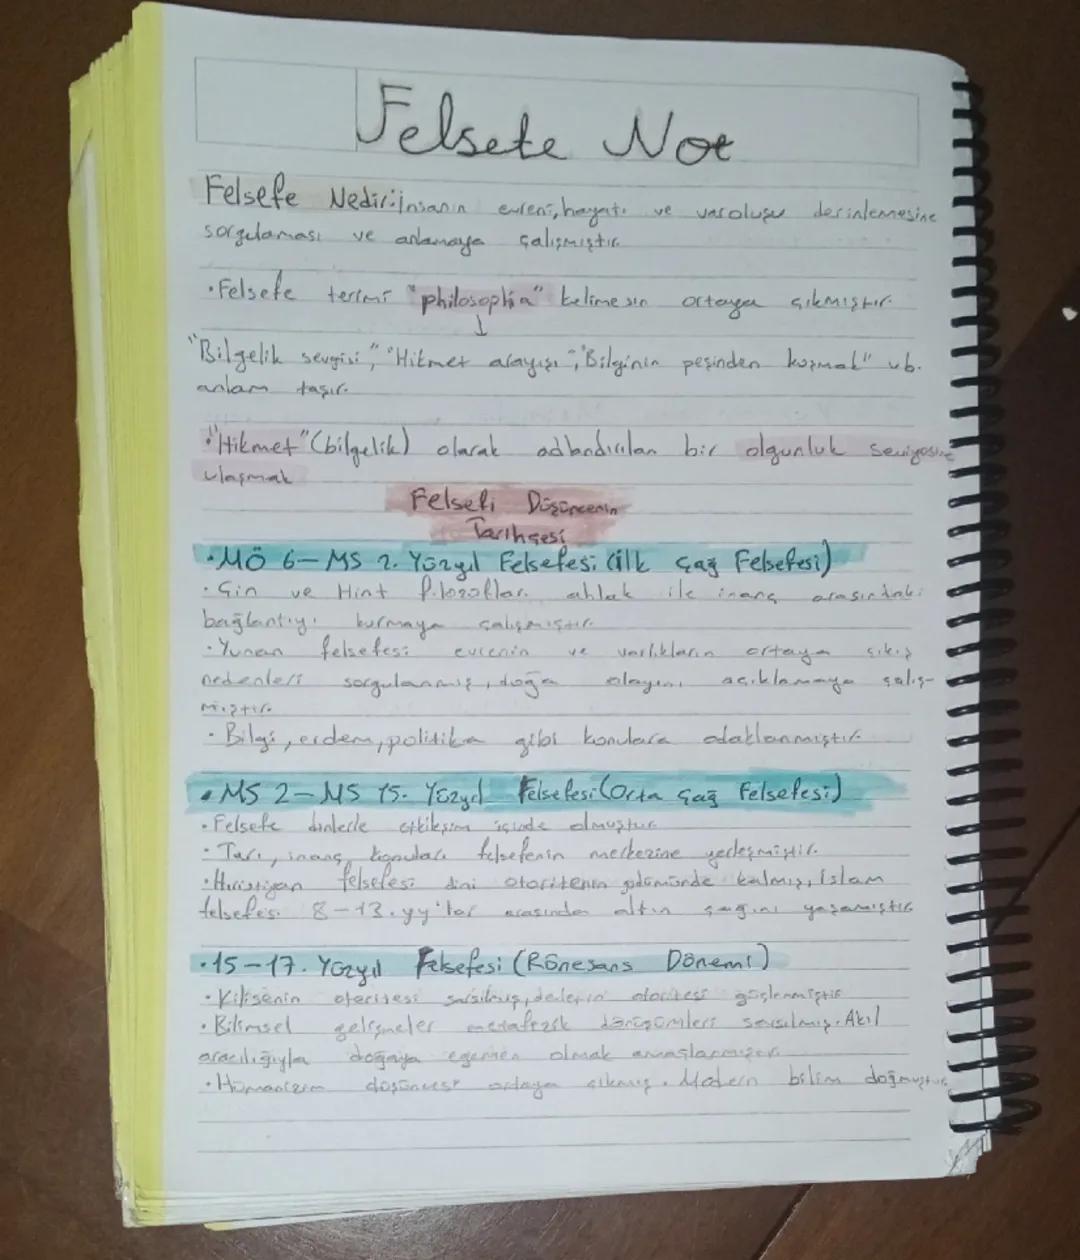 Felsefe Not
Felsefe Nedir: İnsanın evreni, hayatı ve varoluşu derinlemesine
sorgulaması ve anlamaya çalışmıştır.
• Felsefe terimi "philosophia" kelimesin ortaya çıkmıştır.
↓
"Bilgelik sevgisi", "Hikmet arayışı", "Bilginin peşinden koşmak" vb.
anlam taşır.
• "Hikmet" (bilgelik) olarak adlandırılan bir olgunluk seviyesine
ulaşmak
Felsefi Düşüncenin
Tarihçesi
• MÖ 6-MS 2. Yüzyıl Felsefesi (İlk Çağ Felsefesi)
• Çin ve Hint filozofları ahlak ile inanç arasındaki
bağlantıyı kurmaya çalışmıştır.
• Yunan felsefesi evrenin ve varlıkların ortaya çıkış
nedenleri sorgulanmış, doğa olayını açıklamaya çalış-
mıştır.
• Bilgi, erdem, politika gibi konulara odaklanmıştır.
• MS 2-MS 15. Yüzyıl Felsefesi (Orta Çağ Felsefesi)
• Felsefe dinlerle etkileşim içinde olmuştur.
• Tanrı, inanç konuları felsefenin merkezine yerleşmiştir.
• Hıristiyan felsefesi dini otoritenin kalmış, İslam
felsefesi 8-13. yy'lar arasında altın çağını yaşamıştır.
• 15-17. Yüzyıl Felsefesi (Rönesans Dönemi)
• Kilisenin otoritesi sarsılmış, devletin otoritesi güçlenmiştir
• Bilimsel gelişmeler metafizik sarsılmış. Akıl
aracılığıyla doğaya egemen olmak amaçlanmıştır.
• Hümanizm düşüncesi ortaya çıkmış. Modern bilim doğmuştur.